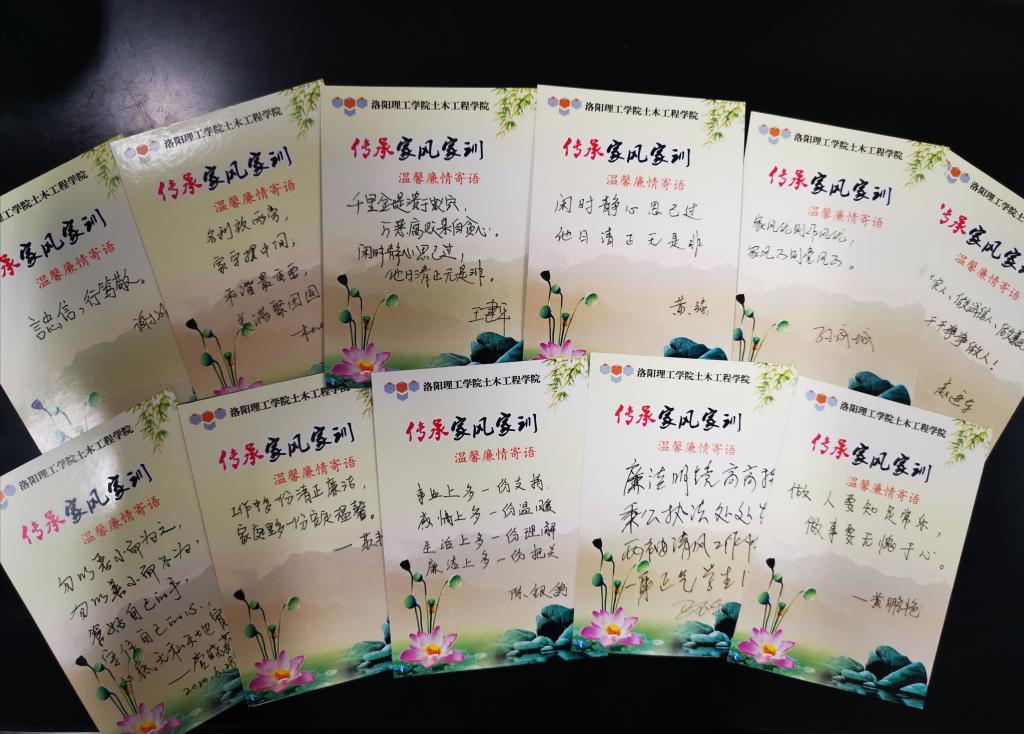 洛阳理工学院土木工程学院
家风家训
温馨廉情寄语
言忠信，行笃敬。
洛阳理工学院土木工程学院
传承家风家训
温馨廉情寄语
名利放两旁，
家守摆中间，
洛阳理工学院土木工程学院
传承家风家训
温馨廉情寄语
千里金堤溃于蚁穴，
万恶腐败来自贪心。
闲时静心思己过，
他日清正无是非。
王建平
洛阳理工学院土木工程学院
传承家风家训
温馨廉情寄语
闲时静心思己过
他日清正无是非
黄强
洛阳理工学院土木工程学院
传承家风家训
温馨廉情寄语
家风优则作风优，
孙成城
洛阳理工学院土木工程学院
家风家训
温馨廉情寄语
干干净净做人！
洛阳理工学院土木工程学院
传承家风家训
温馨廉情寄语
勿以恶小而为之，
勿以善小而不为，
管好自己的手，
守住自己的心，
洛阳理工学院土木工程学院
传承家风家训
温馨廉情寄语
工作中多一份清正廉洁，
家庭多一份安定温馨。
洛阳理工学院土木工程学院
传承家风家训
温馨廉情寄语
事业上多一份支持
感情上多一份温暖
生活上多一份理解
廉洁上多一份把关
洛阳理工学院土木工程学院
传承家风家训
温馨廉情寄语
廉洁明镜高高
秉公执法处处
两袖清风工作中
一身正气学生
洛阳理工学院土木工程学院
传承家风家训
温馨廉情寄语
做人要知足常乐，
做事要无愧于心。
—黄鹏艳